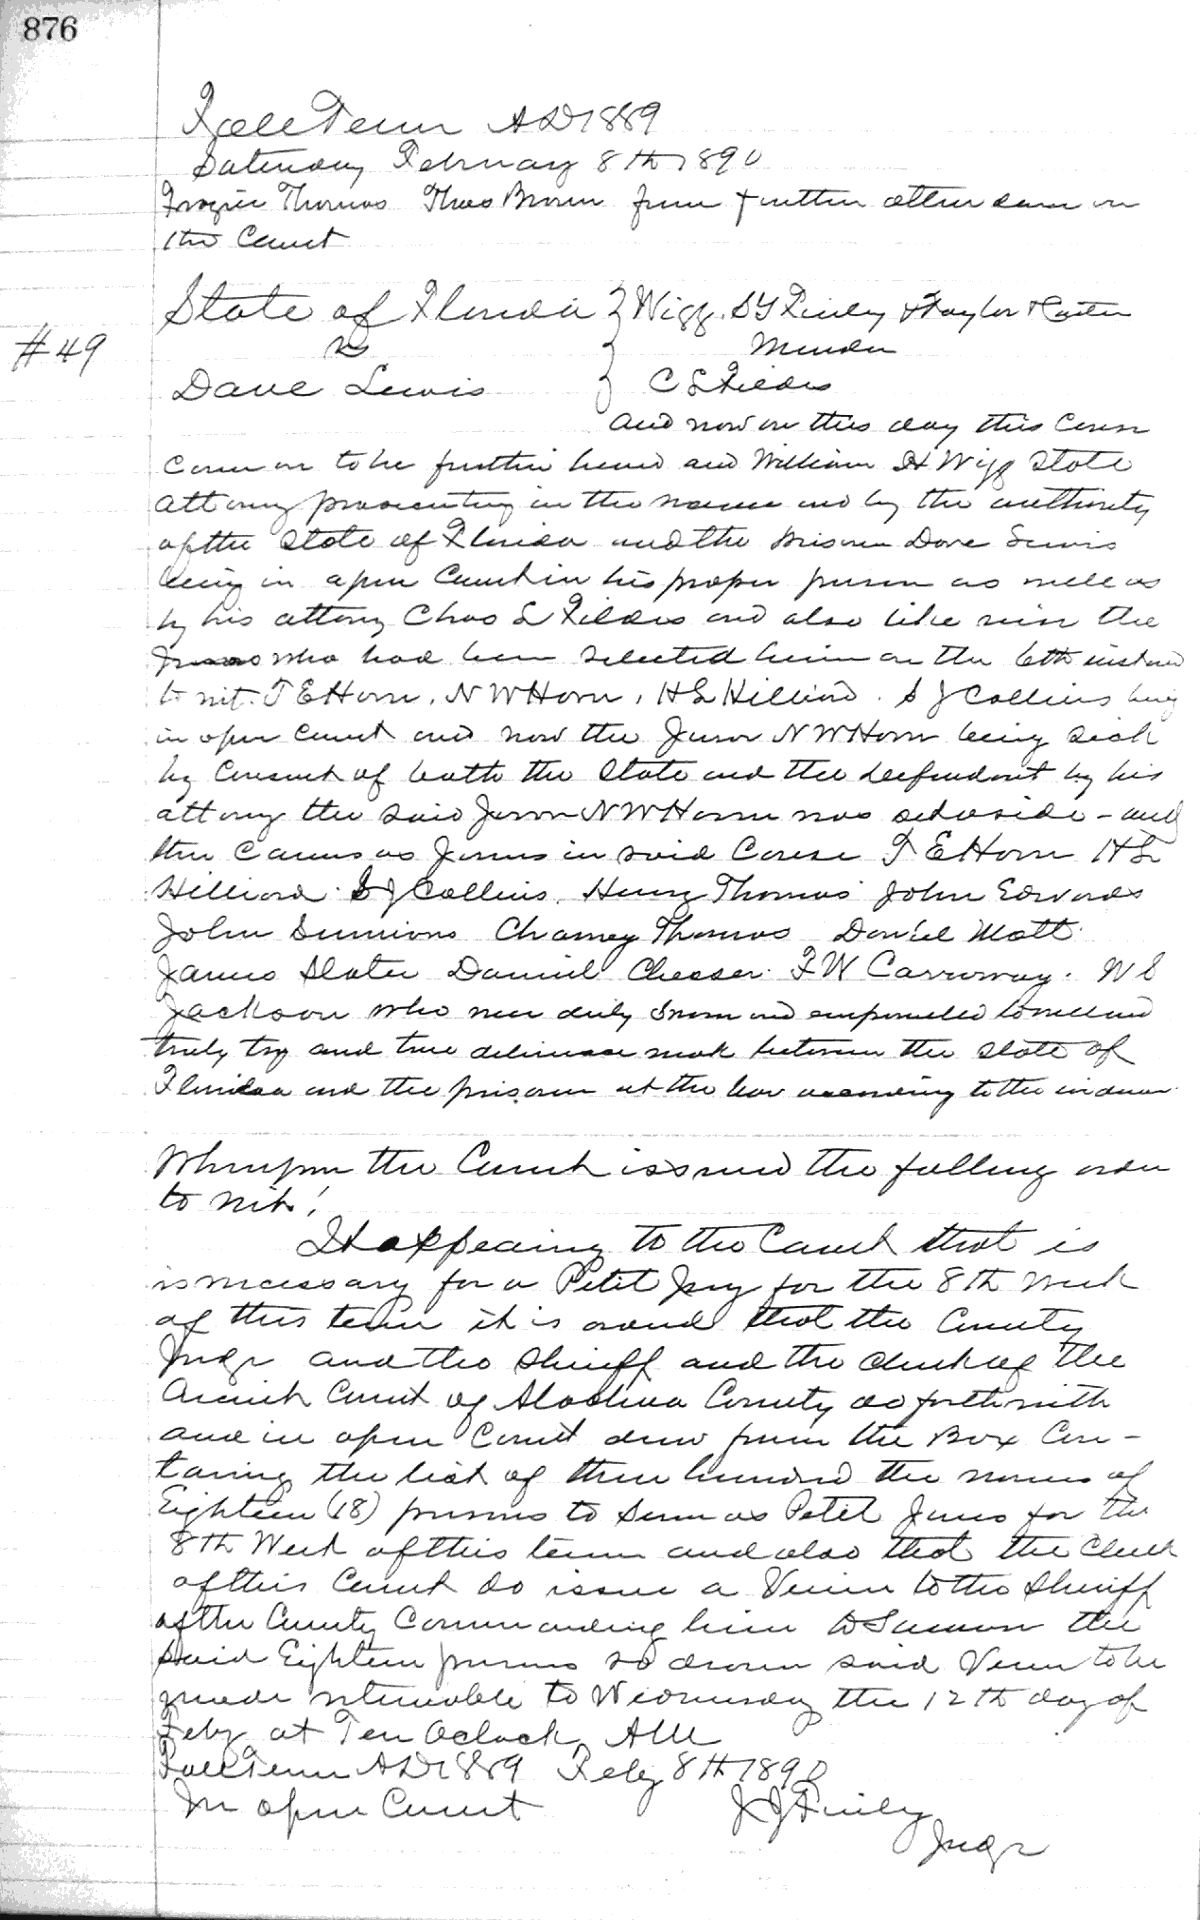 876
Fall Term AD 1889
Saturday February 8th 1890
Frazier Thomas Thos Brown from further attendance on
the Court
State of Florida } Wigg, S Y Finley & Taylor & Carter
#49 vs } Murder
Dave Lewis } C L Fildes
And now on this day this Cause
Came on to be further heard and William H Wigg State
Attorney prosecuting in the name and by the authority
of the State of Florida and the prisoner Dave Lewis
being in open Court in his proper person as well as
by his attorny Chas L Fildes and also like wise the
Jurors who had been selected herein on the 6th instant
to wit. T E Horn, N W Horn, H L Hilliard. S J Collins being
in open Court and now the Juror N W Horn being sick
by Consent of both the State and the deefendant by his
attorny the said Juror N W Horn was set aside - and
then Came as Jurors in said Cause T E Horn H L
Hilliard. S J Collins. Henry Thomas John Edwards
John Simmons Charney Thomas Daniel Mott.
James Slater Daniel Chesser. F W Carraway. W S
Jackson who were duly sworn and empaneled to well and
truly try and true deliverance make between the State of
Florida and the prisoner at the bar according to the evidence
Whereupon the Court issued the following order
to wit!
It appearing to the Court that is
is necessary for a Petit Jury for the 8th Week
of this term it is ordered that the County
Judge and the Sheriff and the clerk of the
Circuit Court of Alachua County do forthwith
and in open Court draw from the Box Con-
taning the list of three hundred the names of
Eighteen (18) persons to serve as Petit Jurors for the
8th Week of this term and also that the Clerk
of this Court do issue a Venire to the Sheriff
of the County Commanding him to Summon the
said Eighteen persons so drawn said Venire to be
made returnable to Wednesday the 12th day of
Feby at Ten Oclock, AM
Fall Term AD 1889 Feby 8th 1890
In open Court J J Finley
Judge